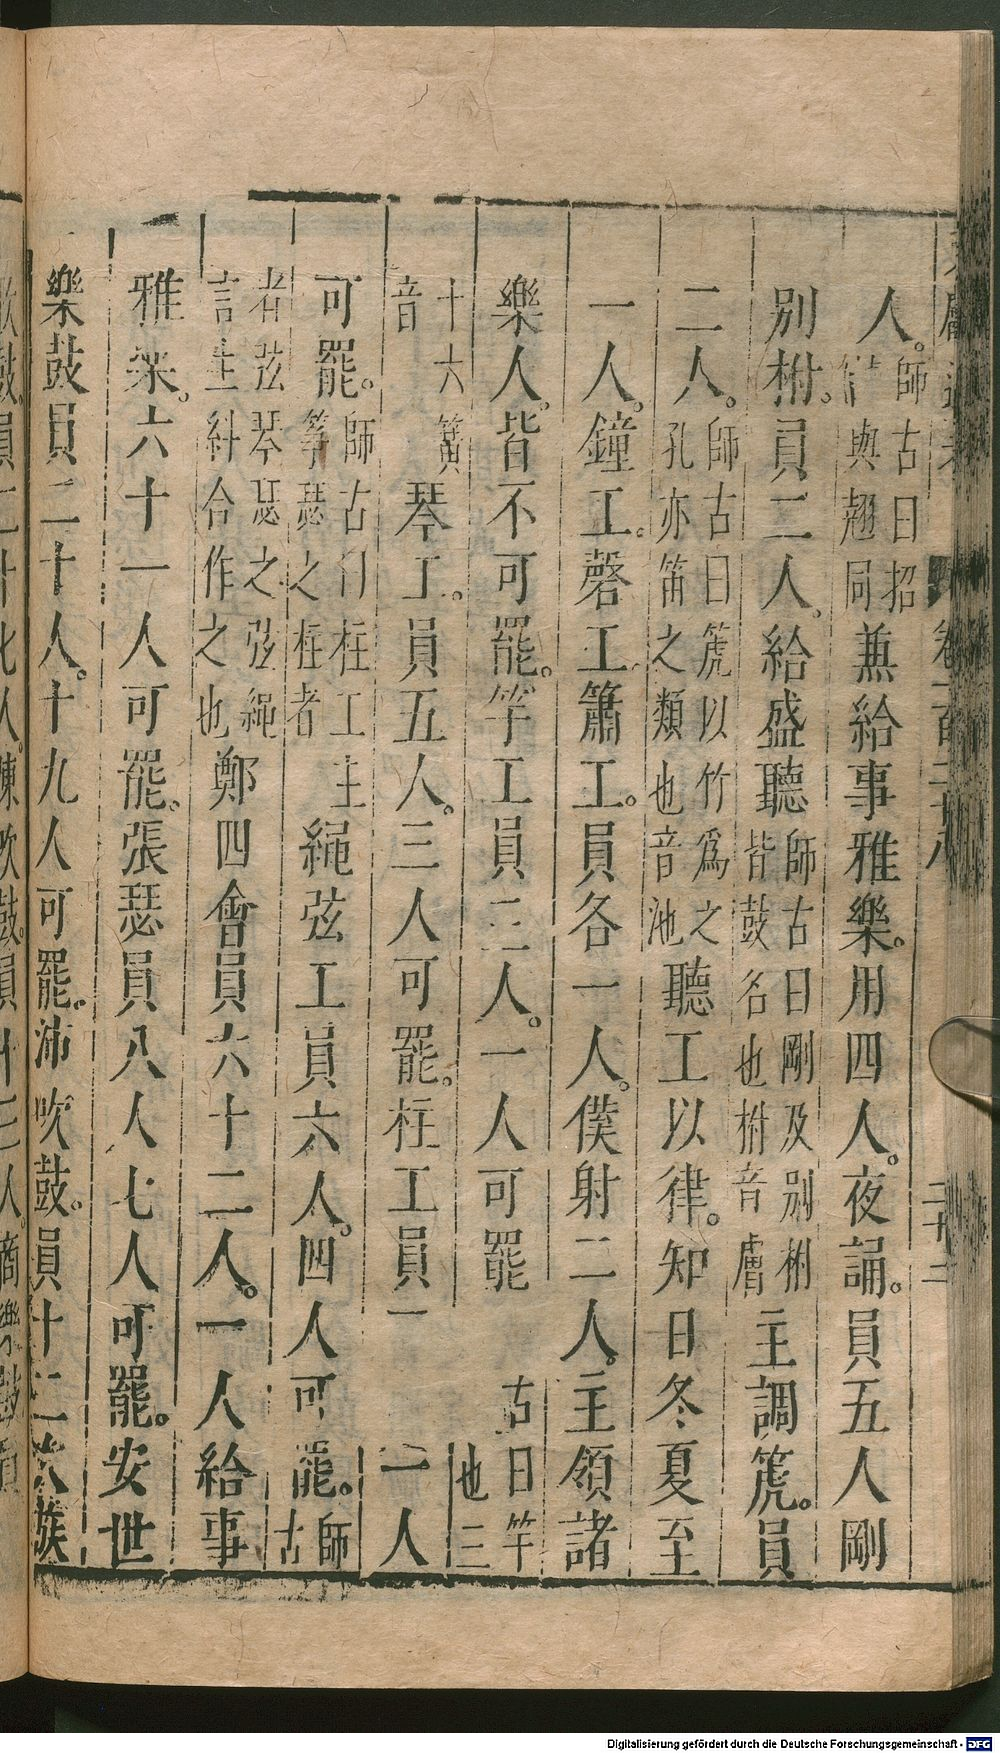 人。師古曰招與翹同兼給事雅樂。用四人。夜誦。員五人剛
別柎。員二人。給盛聽師古曰剛及別柎皆鼓名也柎音膚主調箎。員
二人。師古曰箎以竹爲之孔亦笛之類也音池聽工以律。知日冬夏至
一人。鐘工。磬工。簫工。員各一人。僕射二人。主領諸
樂人。皆不可罷。竽工員三人。一人可罷古曰竽也三
十六簧音琴工。員五人。三人可罷。柱工員一二人
可罷。師古曰柱工主箏瑟之柱者繩弦工員六人。四人可罷。師古
者弦琴瑟之弦繩言主糾合作之也鄭四會員六十二人。一人給事
雅樂。六十一人可罷。張瑟員八人七人可罷。安世
樂鼓員二十人。十九人可罷。沛吹鼓。員十二族
卷一百二十八
二十二
Digitalisierung gefördert durch die Deutsche Forschungsgemeinschaft - DFG